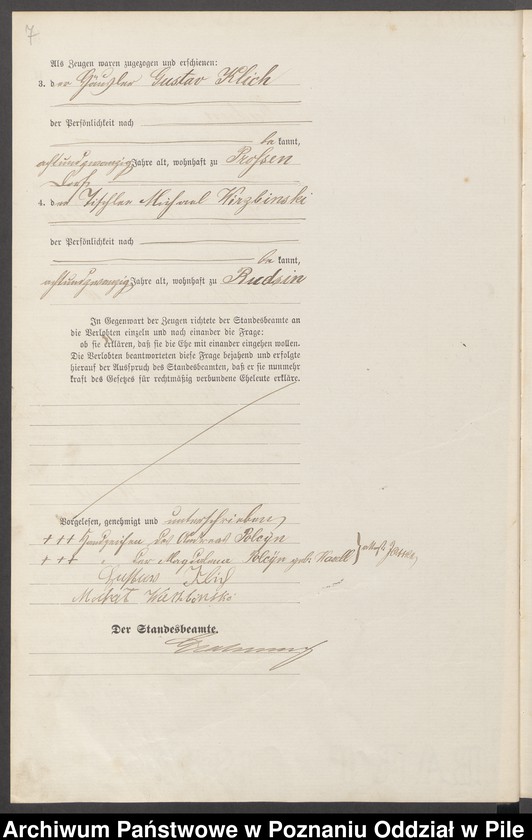 7
Als Zeugen waren zugezogen und erschienen:
3. der Häusler Gustav Klich
der Persönlichkeit nach
bekannt,
achtundzwanzig Jahre alt, wohnhaft zu Prossen
Dorf
4. der Tischler Michael Wirzbinski
der Persönlichkeit nach
bekannt,
achtundzwanzig Jahre alt, wohnhaft zu Rudsin
In Gegenwart der Zeugen richtete der Standesbeamte an
die Verlobten einzeln und nach einander die Frage:
ob sie erklären, daß sie die Ehe mit einander eingehen wollen.
Die Verlobten beantworteten diese Frage bejahend und erfolgte
hierauf der Ausspruch des Standesbeamten, daß er sie nunmehr
kraft des Gesetzes für rechtmäßig verbundene Eheleute erkläre.
Vorgelesen, genehmigt und unterschrieben
+++ Handzeichen des Andreas Polcÿn
+++ " der Magdalena Polcÿn geb.
Gustav Klich
Der Standesbeamte.
Archiwum Państwowe w Poznaniu Oddział w Pile